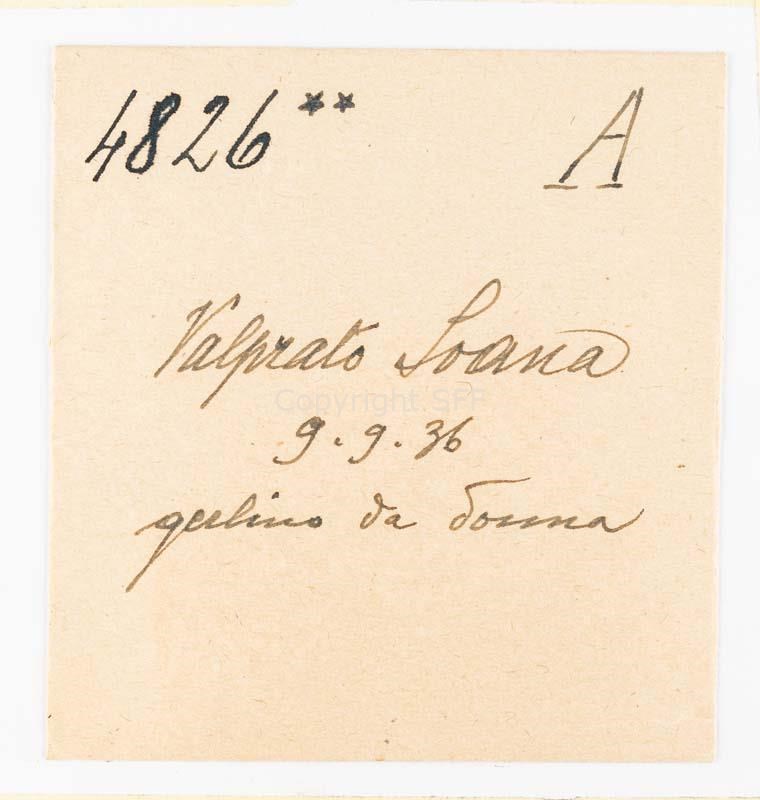 4826** A
Valprato Soana
Copyright SFF
9.9.36
gerlino da donna